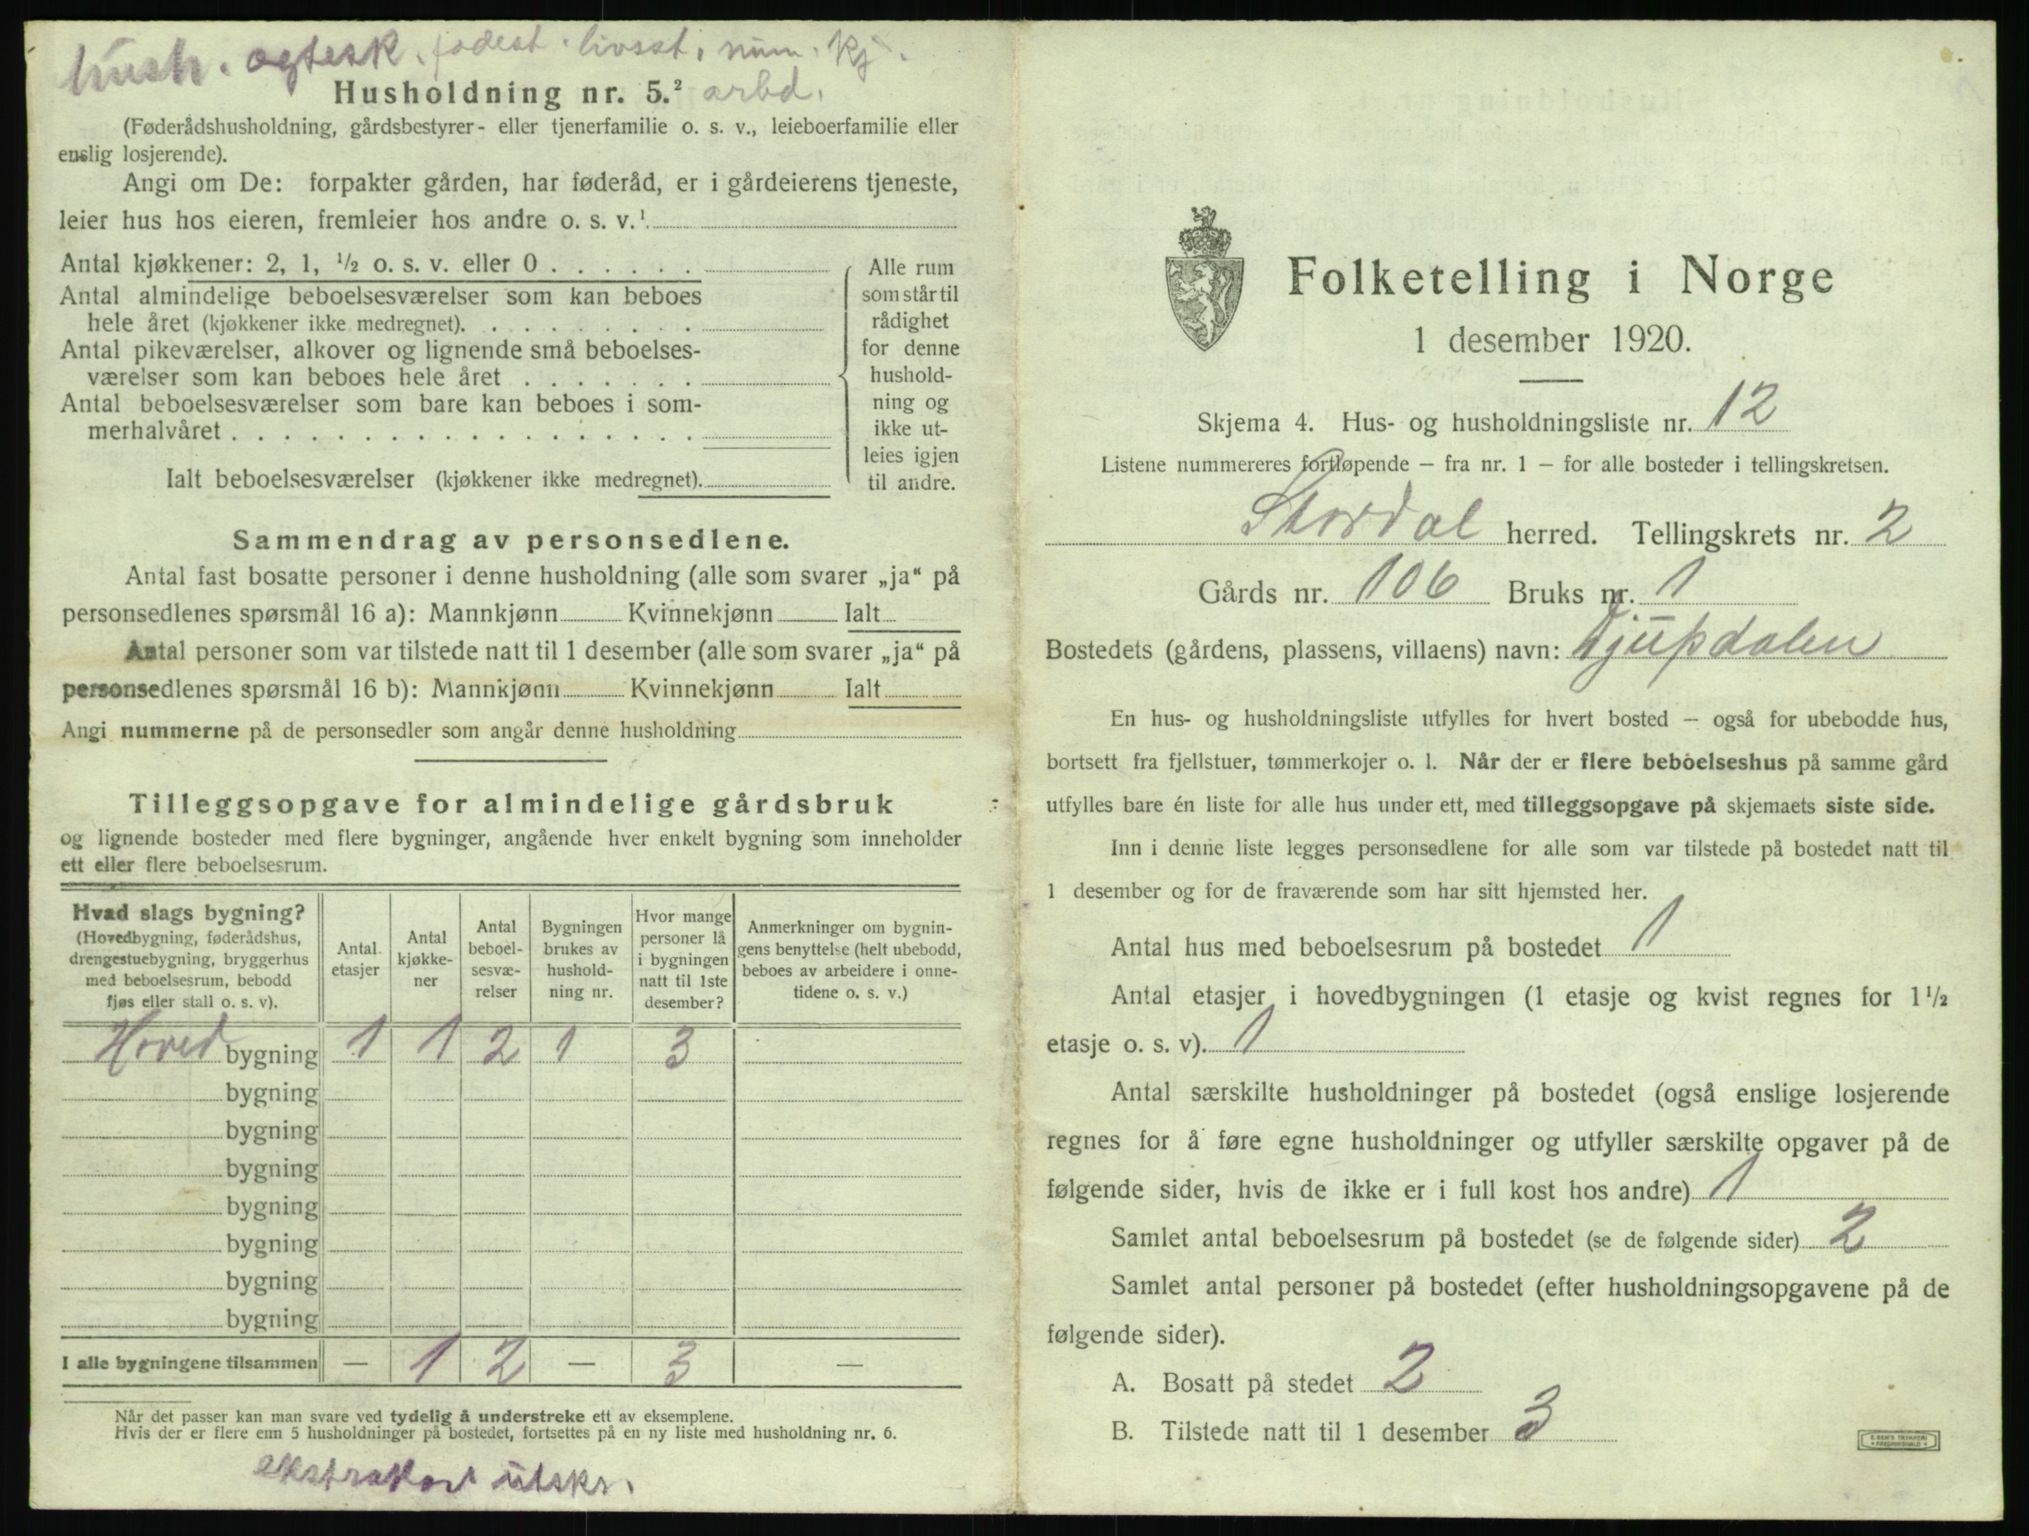 hush. ogtesk. fødest. livsst. num. kj.
Husholdning nr. 5.² arbd.
(Føderådshusholdning, gårdsbestyrer- eller tjenerfamilie o. s. v., leieboerfamilie eller
enslig losjerende).
Angi om De: forpakter gården, har føderåd, er i gårdeierens tjeneste,
leier hus hos eieren, fremleier hos andre o. s. v.¹
Antal kjøkkener: 2, 1, ½ o. s. v. eller 0 . . . . . .
Antal almindelige beboelsesværelser som kan beboes
hele året (kjøkkener ikke medregnet). . . . . . . . .
Antal pikeværelser, alkover og lignende små beboelses-
værelser som kan beboes hele året . . . . . . .
Antal beboelsesværelser som bare kan beboes i som-
merhalvåret . . . . . . . . . . . . . . . . . .
Ialt beboelsesværelser (kjøkkener ikke medregnet).
Alle rum
som står til
rådighet
for denne
hushold-
ning og
ikke ut-
leies igjen
til andre.
Sammendrag av personsedlene.
Antal fast bosatte personer i denne husholdning (alle som svarer „ja“ på
personsedlenes spørsmål 16 a): Mannkjønn Kvinnekjønn Ialt
Antal personer som var tilstede natt til 1 desember (alle som svarer „ja“ på
personsedlenes spørsmål 16 b): Mannkjønn Kvinnekjønn Ialt
Angi nummerne på de personsedler som angår denne husholdning
Tilleggsopgave for almindelige gårdsbruk
og lignende bosteder med flere bygninger, angående hver enkelt bygning som inneholder
ett eller flere beboelsesrum.
Hvad slags bygning?
(Hovedbygning, føderådshus,
drengestuebygning, bryggerhus
med beboelsesrum, bebodd
fjøs eller stall o. s. v).
Antal
etasjer
Antal
kjøkke-
ner
Antal
beboel-
sesvæ-
relser
Bygningen
brukes av
hushold-
ning nr.
Hvor mange
personer lå
i bygningen
natt til 1ste
desember?
Anmerkninger om bygnin-
gens benyttelse (helt ubebodd,
beboes av arbeidere i onne-
tidene o. s. v.)
Hoved bygning 1 1 2 1 3
bygning
bygning
bygning
bygning
bygning
bygning
bygning
I alle bygningene tilsammen — 1 2 — 3 —
Når det passer kan man svare ved tydelig å understreke ett av eksemplene.
Hvis der er flere enn 5 husholdninger på bostedet, fortsettes på en ny liste med husholdning nr. 6.
utskr.
Folketelling i Norge
1 desember 1920.
Skjema 4. Hus- og husholdningsliste nr. 12
Listene nummereres fortløpende — fra nr. 1 — for alle bosteder i tellingskretsen.
Stordal herred. Tellingskrets nr. 2
Gårds nr. 106 Bruks nr. 1
Bostedets (gårdens, plassens, villaens) navn: Djupdalen
En hus- og husholdningsliste utfylles for hvert bosted — også for ubebodde hus,
bortsett fra fjellstuer, tømmerkojer o. l. Når der er flere beboelseshus på samme gård
utfylles bare én liste for alle hus under ett, med tilleggsopgave på skjemaets siste side.
Inn i denne liste legges personsedlene for alle som var tilstede på bostedet natt til
1 desember og for de fraværende som har sitt hjemsted her.
Antal hus med beboelsesrum på bostedet 1
Antal etasjer i hovedbygningen (1 etasje og kvist regnes for 1½
etasje o. s. v). 1
Antal særskilte husholdninger på bostedet (også enslige losjerende
regnes for å føre egne husholdninger og utfyller særskilte opgaver på de
følgende sider, hvis de ikke er i full kost hos andre) 1
Samlet antal beboelsesrum på bostedet (se de følgende sider) 2
Samlet antal personer på bostedet (efter husholdningsopgavene på de
følgende sider).
A. Bosatt på stedet 2
B. Tilstede natt til 1 desember 3